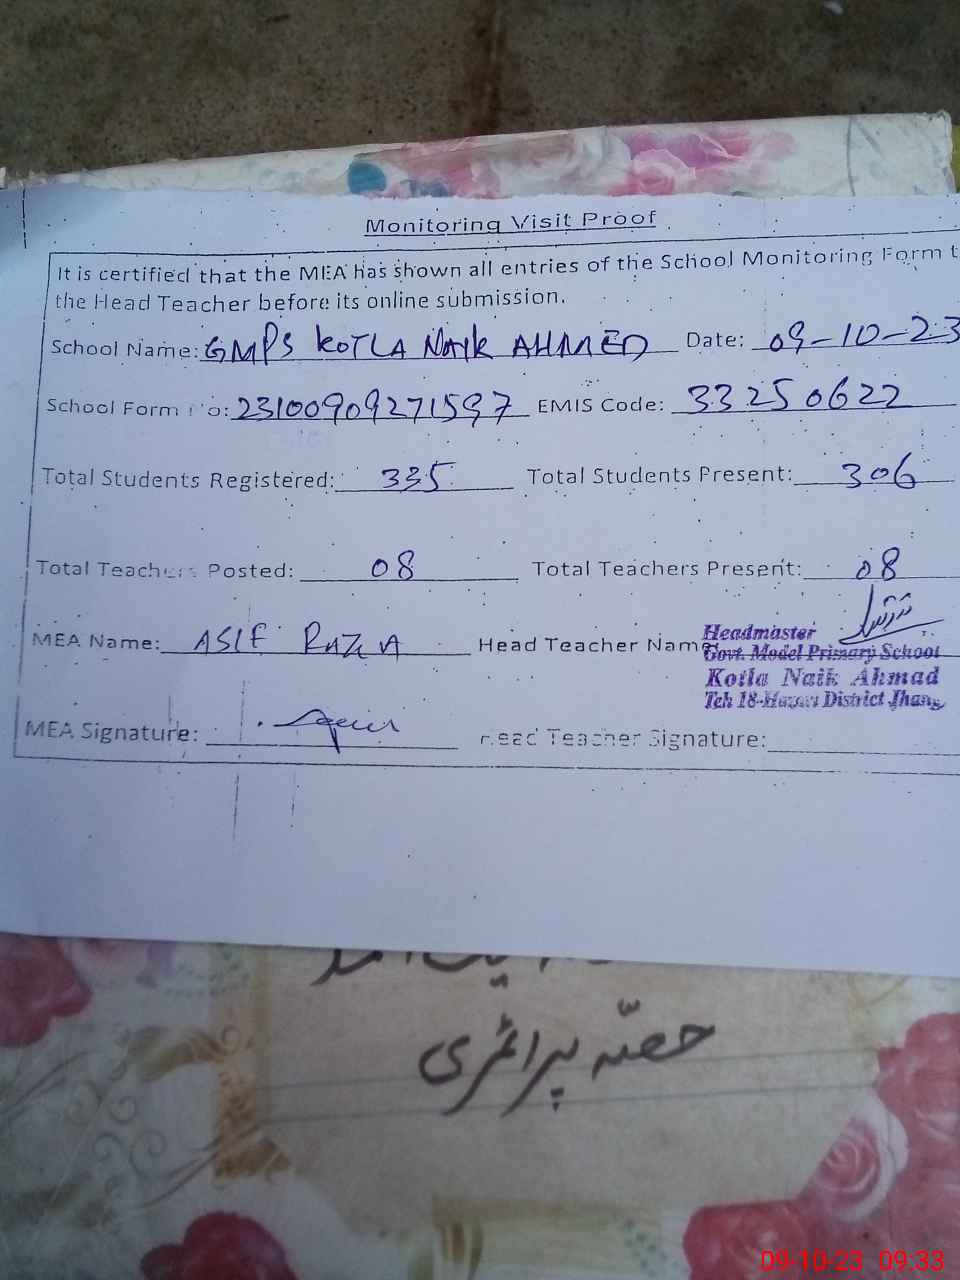 Monitoring Visit Proof
It is certified that the MEA has shown all entries of the School Monitoring Form t
the Head Teacher before its online submission.
School Name: GMPS KOTLA NAIK AHMED Date: 09-10-23
School Form No: 23100909271597 EMIS Code: 33250622
Total Students Registered: 335 Total Students Present: 306
Total Teachers Posted: 08 Total Teachers Present: 08
MEA Name: ASIF RAZA Head Teacher Name
Headmaster
Govt. Model Primary School
Kotla Naik Ahmad
Teh 18-Hazari District Jhang
MEA Signature: Head Teacher Signature:
حصّہ پرائمری
09-10-23 09:33